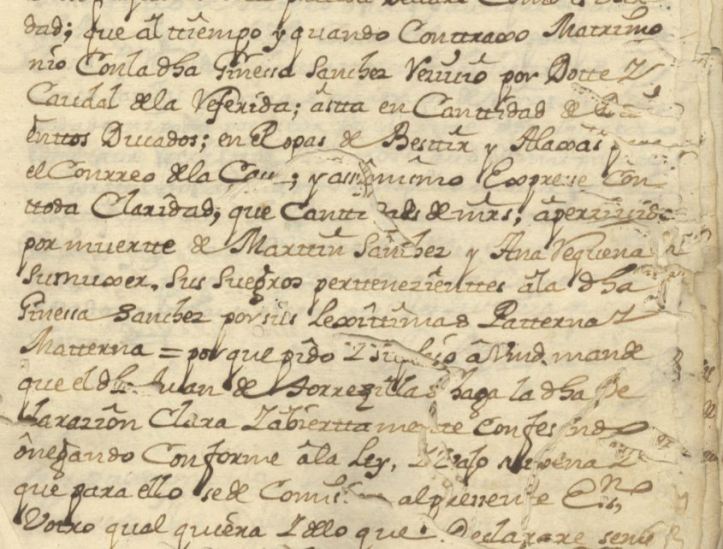 dad; que al ttiempo y quando Conttraxo Matrimo
nio Con la dha Ginessa Sanchez Reziuio por Dotte Y
Caudal de la Referida; asta en Canttidad de
enttos Ducados; en Ropas de Besttir y Alaxas
el Conrreo de la ; y assimismo Exprese Con
ttoda Claridad; que Canttidades de mrs; a perziuido
por muertte de Marttin Sanchez y Ana Requena
su muxer. sus suegros pertenezienttes a la dha
Ginessa Sanchez por sus Lexittimas Patterna Y
Matterna = por que pido Y suplico a Vmd. mande
que el dho Juan de Torrezillas haga la dha De
clarazion Clara Y abierttamente confesando
o negando Conforme a la Ley, Y vajo su pena Y
que para ello se de Comis al pressente Essno
V otro qual quiera Y dello que Declarare